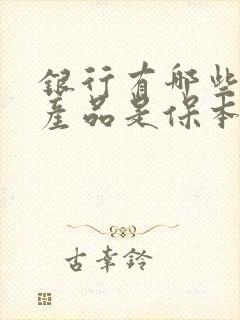 银行有哪些
产品是保本
古幸铃